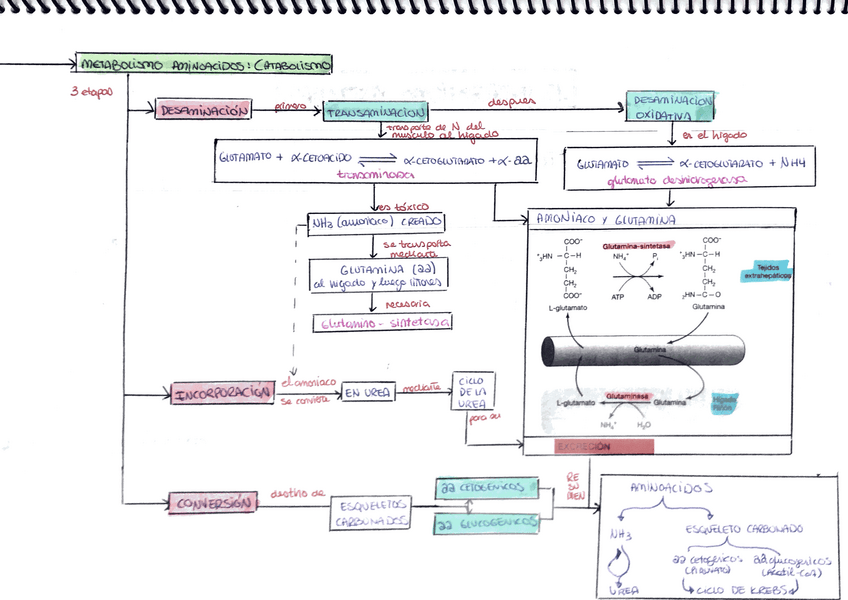 METABOLISMO AMINOACIDOS: CATABOLISMO
3 etapas
DESAMINACIÓN
primero
TRANSAMINACION
despues
DESAMINACION
OXIDATIVA
transporte de N del
musculo al higado
en el higado
GLUTAMATO + α-CETOACIDO ⇌ α-CETOGLUTARATO + α-aa
transaminasa
GLUTAMATO ⇌ α-CETOGLUTARATO + NH4
glutamato deshidrogenasa
es tóxico
NH3 (amoniaco) CREADO
se transporta
mediante
GLUTAMINA (aa)
al higado y luego riñones
necesaria
Glutamina - sintetasa
AMONÍACO Y GLUTAMINA
COO⁻
⁺3HN — C — H
CH2
CH2
COO⁻
L-glutamato
Glutamina-sintetasa
NH4⁺
Pi
ATP
ADP
COO⁻
⁺3HN — C — H
CH2
CH2
2HN — C — O
Glutamina
Tejidos
extrahepáticos
Glutamina
L-glutamato
Glutaminasa
Glutamina
NH4⁺
H2O
Hígado
Riñón
INCORPORACIÓN
el amoniaco
se convierte
EN UREA
mediante
CICLO
DE LA
UREA
para su
EXCRECIÓN
CONVERSIÓN
destino de
ESQUELETOS
CARBONADOS
aa CETOGENICOS
aa GLUCOGENICOS
RE
SU
MEN
AMINOÁCIDOS
NH3
UREA
ESQUELETO CARBONADO
aa cetogenicos
(PIRUVATO)
aa glucogenicos
(Acetil-CoA)
CICLO DE KREBS